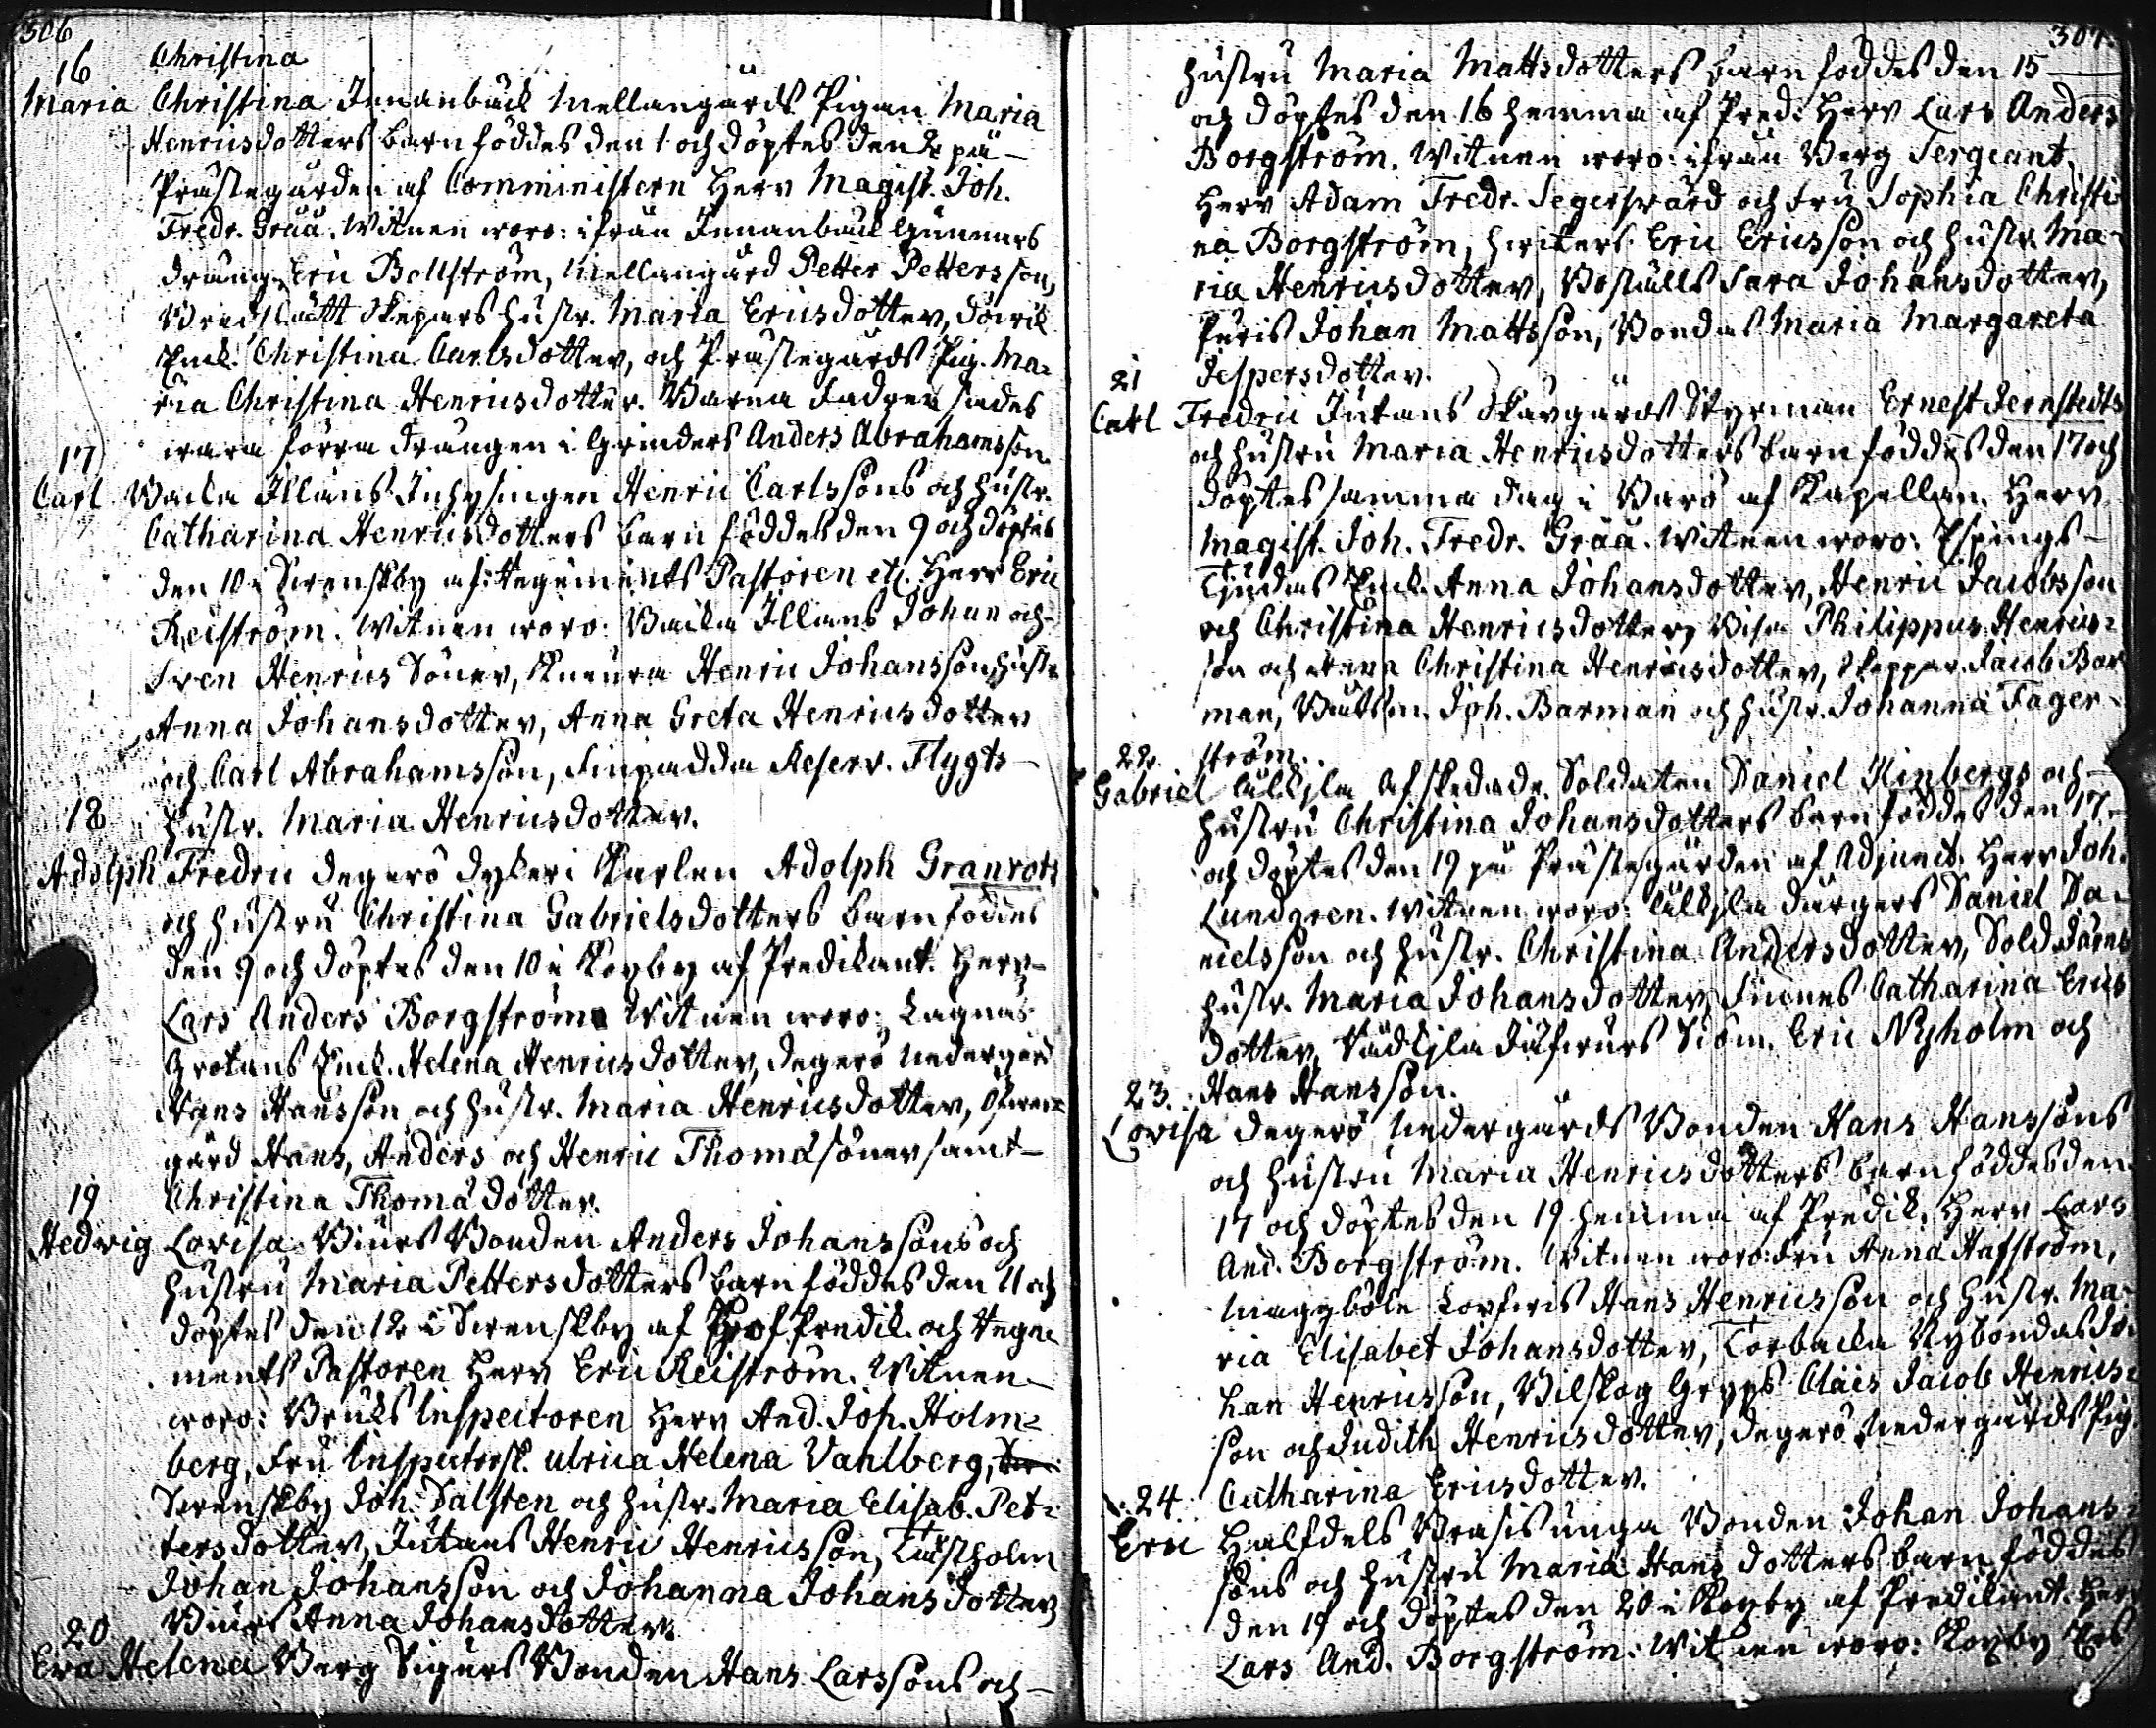 306
Christina
16
Maria Christina Innanbäck Mellangårds Pigan Maria
Henricsdotters barn föddes den 1 och döptes den 2 på
Prästegården af Comministern Herr Magist. Joh.
Fredr. Grää. Witnen woro: ifrån Innanbäck Gunnars
dräng. Eric Bollström, Mellangård Petter Pettersson,
Skepars hustr. Maria Ericsdotter,
Enck. Christina Carlsdotter, och Prästegårds Pig. Ma=
ria Christina Henricsdotter. Barna Fadren sades
wara förra drängen i Grinders Anders Abrahamsson.
17
Carl Backa Illians Inhysingen Henric Carlssons och hustr.
Catharina Henricsdotters barn föddes den 9 och döptes
den 10 i Svenskby af Regements Pastoren etc. Herr Eric
Reiström. Witnen woro: Backa Illians Johan och
Sven Henrics Söner, Henric Johanssons hustr.
Anna Johansdotter, Anna Greta Henricsdotter
och Carl Abrahamsson, Finpadda Reserv. Flygts
18
hustr. Maria Henricsdotter.
Adolph Fredric Degerö Dykeri Karlen Adolph Granrots
och hustru Christina Gabrielsdotters barn föddes
den 9 och döptes den 10 i Koxby af Predikant. Herr
Lars Anders Borgström. Witnen woro: Lagnäs
Grotans Enck. Helena Henricsdotter, Degerö Nedergård
Hans Hansson och hustr. Maria Henricsdotter, Öfwer=
gård Hans, Anders och Henric Thomæsöner samt
19
Christina Thomædotter.
Hedvig Lovisa Biurs Bonden Anders Johanssons och
hustru Maria Pettersdotters barn föddes den 11 och
döptes den 12 i Svenskby af Hof Predik. och Rege=
ments Pastoren Herr Eric Reiström. Witnen
woro: Bruks Inspectoren Herr And. Joh. Holm=
berg, Fru Inspectorsk. Ulrica Helena Vahlberg,
Svenskby Joh. Dalsten och hustr. Maria Elisab. Pet=
tersdotter, Jutans Henric Henricsson, Täcktholm
Johan Johansson och Johanna Johansdotter
Biurs Anna Johansdotter.
20
Eva Helena Berg Sigurs Bonden Hans Larssons och
307.
hustru Maria Mattsdotters barn föddes den 15
och döptes den 16 hemma af Pred. Herr Lars Anders
Borgström. Witnen woro: ifrån Berg Sergeant.
Herr Adam Fredr. Segersvärd och Fru Sophia Christi
na Borgström, Eric Ericsson och hustr. Ma=
ria Henricsdotter, Boställs Sara Johansdotter,
Puris Johan Mattsson, Bondas Maria Margareta
21
Jespersdotter.
Carl Fredric Jutans Skavgårds Styrman Ernest Jernstedts
och hustru Maria Henricsdotters barn föddes den 17 och
döptes samma dag i Barö af Kapellan. Herr
Magist. Joh. Fredr. Grää. Witnen woro: Espings
Tjudas Enck. Anna Johansdotter, Henric Jacobsson
och Christina Henricsdotter, Bisa Philippus Henrics=
son och Christina Henricsdotter, Skeppar. Jacob Bar
man, Båtsm. Joh. Barman och hustr. Johanna Fager=
22.
ström.
Gabriel Lillkyla Afskedade Soldaten Daniel Kinbergs och
hustru Christina Johansdotters barn föddes den 17
och döptes den 19 på Prästegården af Adjunct. Herr Joh.
Lundgren. Witnen woro: Lillkyla Dårgers Daniel Da=
nielsson och hustr. Christina Andersdotter, Sold. Järns
hustr. Maria Johansdotter, Finnes Catharina Erics
dotter, Siöm. Eric Nyholm och
23.
Hans Hansson.
Lovisa Degerö Nedergårds Bonden Hans Hanssons
och hustru Maria Henricsdotters barn föddes den
17 och döptes den 19 hemma af Predik. Herr Lars
And. Borgström. Witnen woro: Fru Anna Hafström,
Maggböle Hans Henricsson och hustr. Ma=
ria Elisabet Johansdotter, Torbacka Nybondas Jo=
han Henricsson, Bilskog Grepps Claes Jacob Henrics=
son och Judith Henricsdotter, Degerö Nedergårds Pig.
24.
Catharina Ericsdotter.
Eric Halfdels Brasis unga Bonden Johan Johans=
sons och hustru Maria Hansdotters barn föddes
den 19 och döptes den 20 i Koxby af Predikant. Herr
Lars And. Borgström. Witnen woro: Koxby Ers